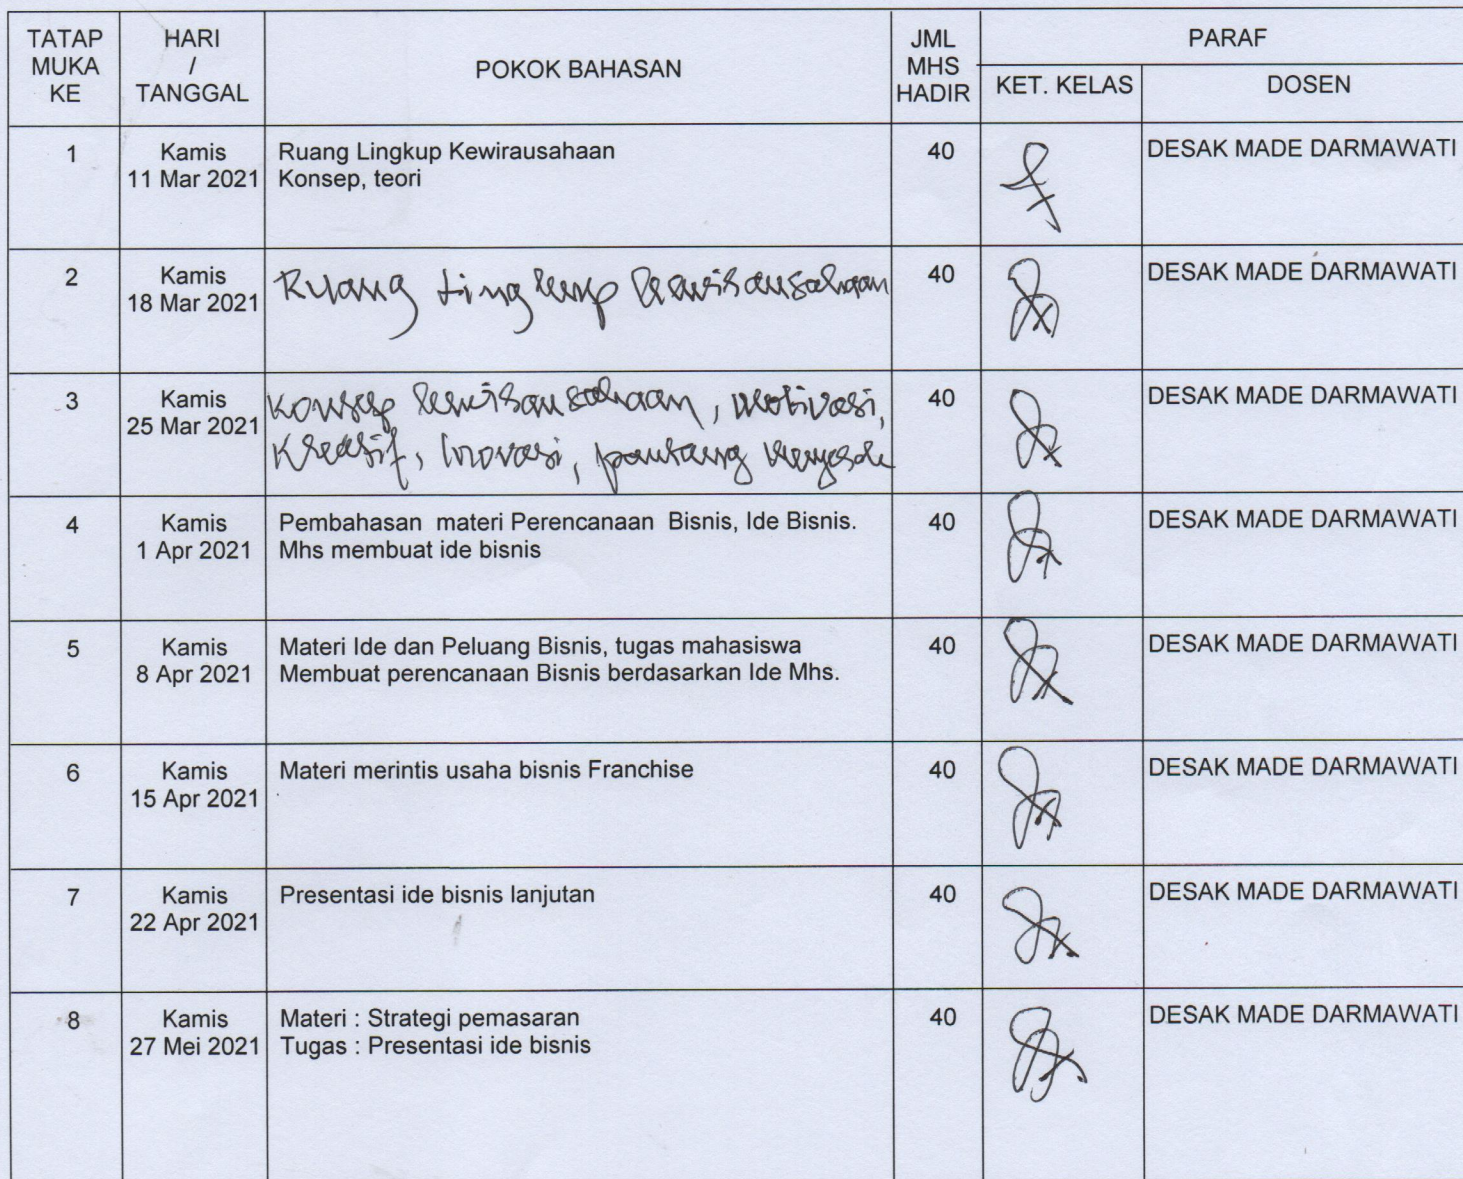 TATAP MUKA KE
HARI / TANGGAL
POKOK BAHASAN
JML MHS HADIR
PARAF
KET. KELAS
DOSEN
1
Kamis
11 Mar 2021
Ruang Lingkup Kewirausahaan
Konsep, teori
40
DESAK MADE DARMAWATI
2
Kamis
18 Mar 2021
Ruang Lingkup kewirausahaan
40
DESAK MADE DARMAWATI
3
Kamis
25 Mar 2021
Konsep kewirausahaan, motivasi,
Kreatif, Inovasi, pantang
40
DESAK MADE DARMAWATI
4
Kamis
1 Apr 2021
Pembahasan materi Perencanaan Bisnis, Ide Bisnis.
Mhs membuat ide bisnis
40
DESAK MADE DARMAWATI
5
Kamis
8 Apr 2021
Materi Ide dan Peluang Bisnis, tugas mahasiswa
Membuat perencanaan Bisnis berdasarkan Ide Mhs.
40
DESAK MADE DARMAWATI
6
Kamis
15 Apr 2021
Materi merintis usaha bisnis Franchise
40
DESAK MADE DARMAWATI
7
Kamis
22 Apr 2021
Presentasi ide bisnis lanjutan
40
DESAK MADE DARMAWATI
8
Kamis
27 Mei 2021
Materi : Strategi pemasaran
Tugas : Presentasi ide bisnis
40
DESAK MADE DARMAWATI